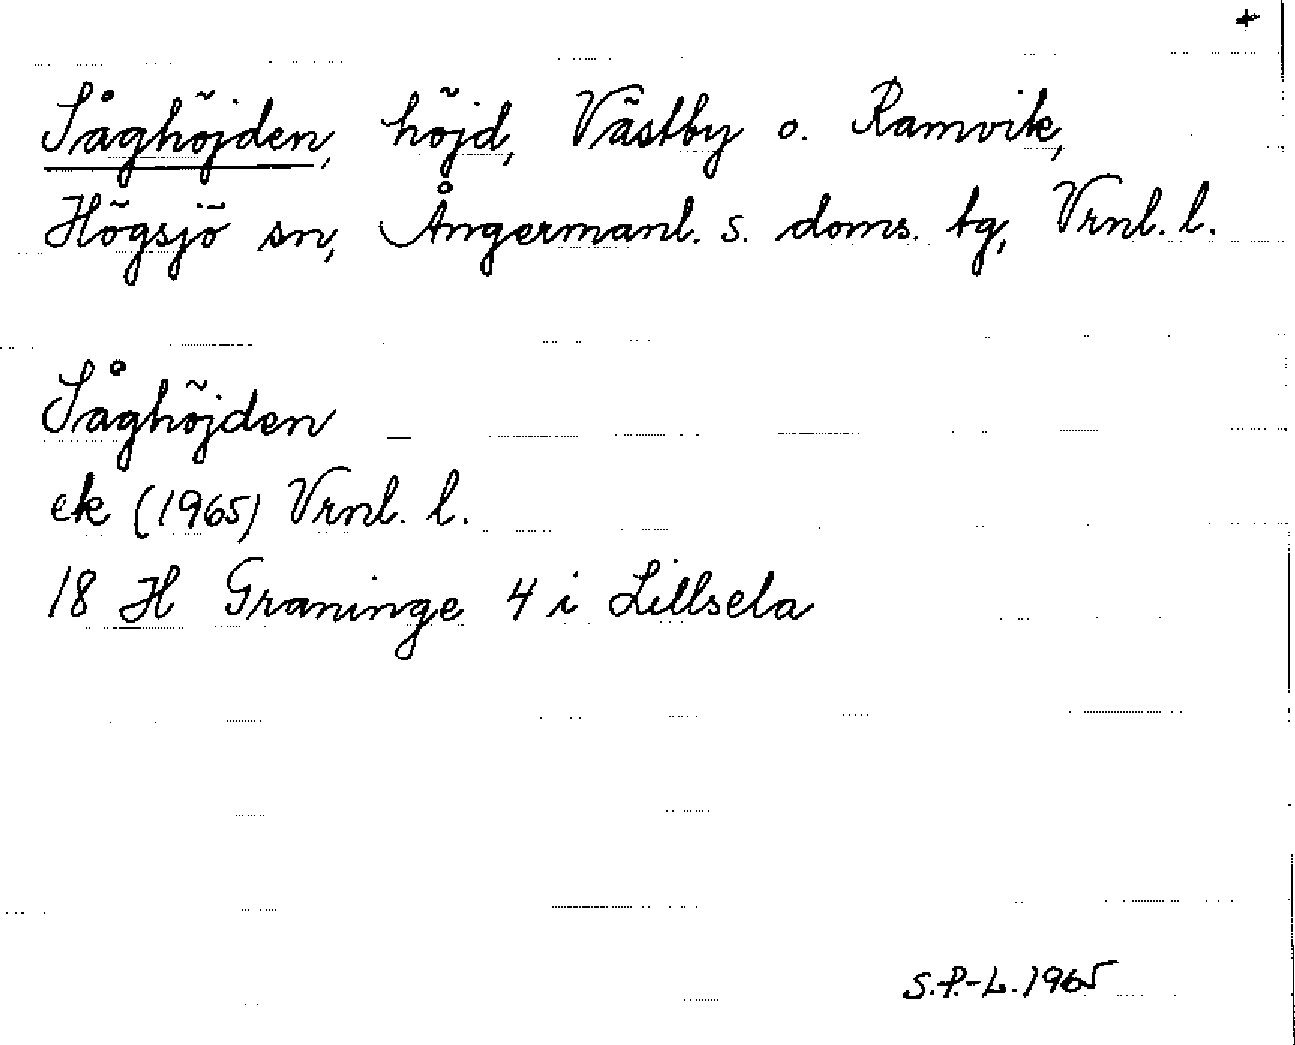 +
Såghöjden, höjd, Västby o. Ramvik,
Högsjö sn, Ångermanl. s. doms. tg, Vrnl. l.
Såghöjden –
ek (1965) Vrnl. l.
18 H Graninge 4 i Lillsela
S.P.-L. 1965